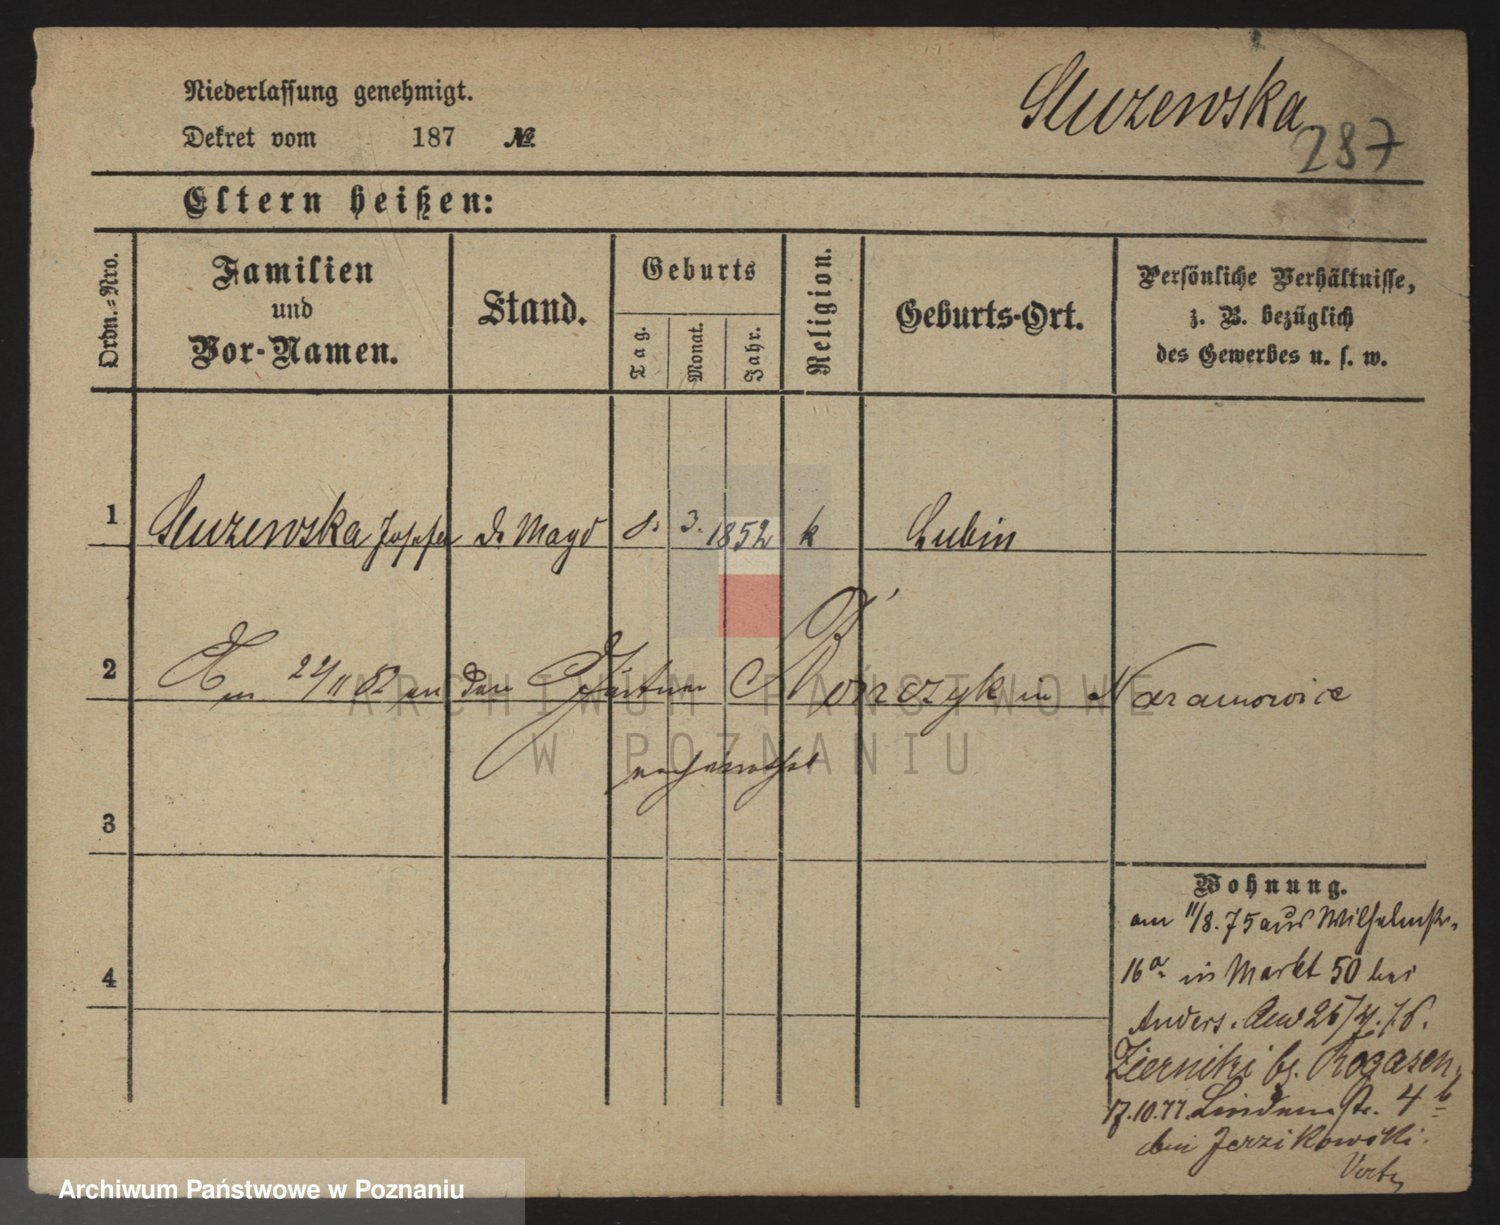 Niederlassung genehmigt.
Dekret vom 187 №
Sluzewska
287
Eltern heißen:
Ordn.-Nro.
Familien
und
Vor-Namen.
Stand.
Geburts
Tag.
Monat.
Jahr.
Religion.
Geburts-Ort.
Persönliche Verhältnisse,
z. B. bezüglich
des Gewerbes u. s. w.
1 Sluzewska Josefa d. Magd 8. 3. 1852 k Lubin
2 Am 22/11 82 an den Gärtner Worczyk in Naramowice
verheirathet
3
4
Wohnung.
am 11/8. 75 aus Wilhelmstr.
16a in Markt 50 bei
Anders. Am 25/4. 76.
Zierniki b. Rogasen.
17.10.77 Lindenstr. 4b
bei Jerzikowski.
Vert.
ARCHIWUM PAŃSTWOWE
W POZNANIU
Archiwum Państwowe w Poznaniu